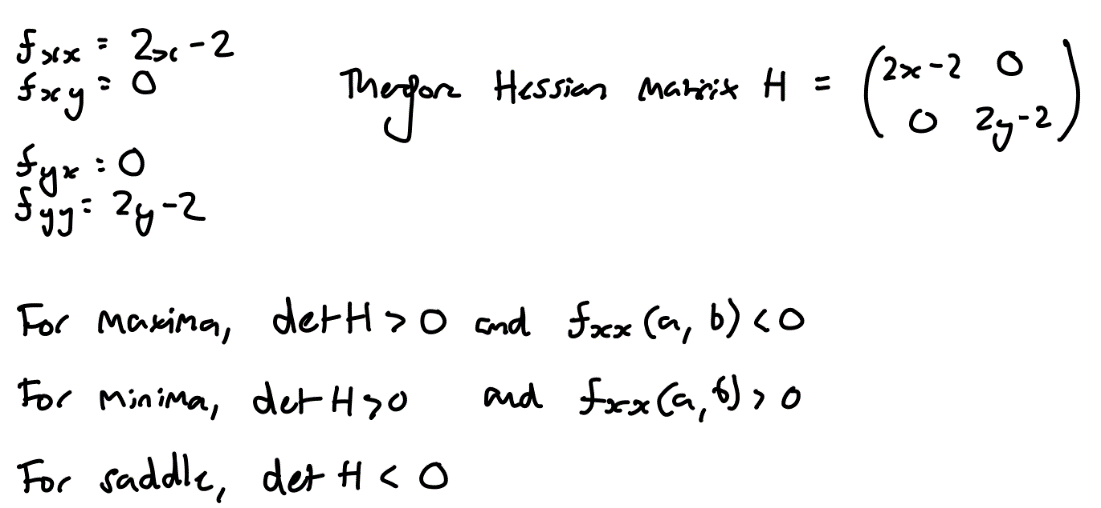 fxx = 2x-2
fxy = 0
Therefore Hessian Matrix H = (2x-2 0
0 2y-2)
fyx = 0
fyy = 2y-2
For maxima, det H > 0 and fxx (a, b) < 0
For minima, det H > 0 and fxx (a, b) > 0
For saddle, det H < 0